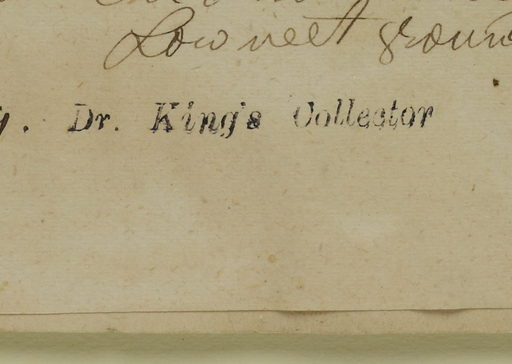 Low wet groun
y. Dr. King's Collector